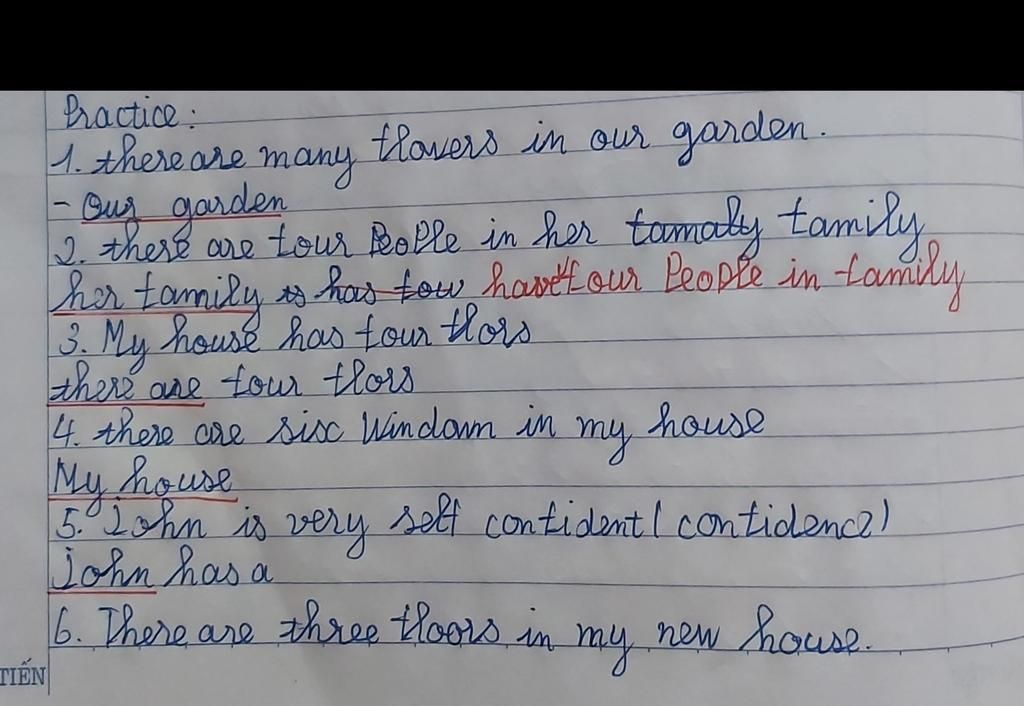 Practice:
1. there are many flowers in our garden.
- Our garden
2. there are four People in her family
her family have four People in family
3. My house has four flors
there are four flors
4. there are sisc Windown in my house
My house
5. John is very self confident (confidence)
John has a
6. There are three floors in my new house.
TIẾN